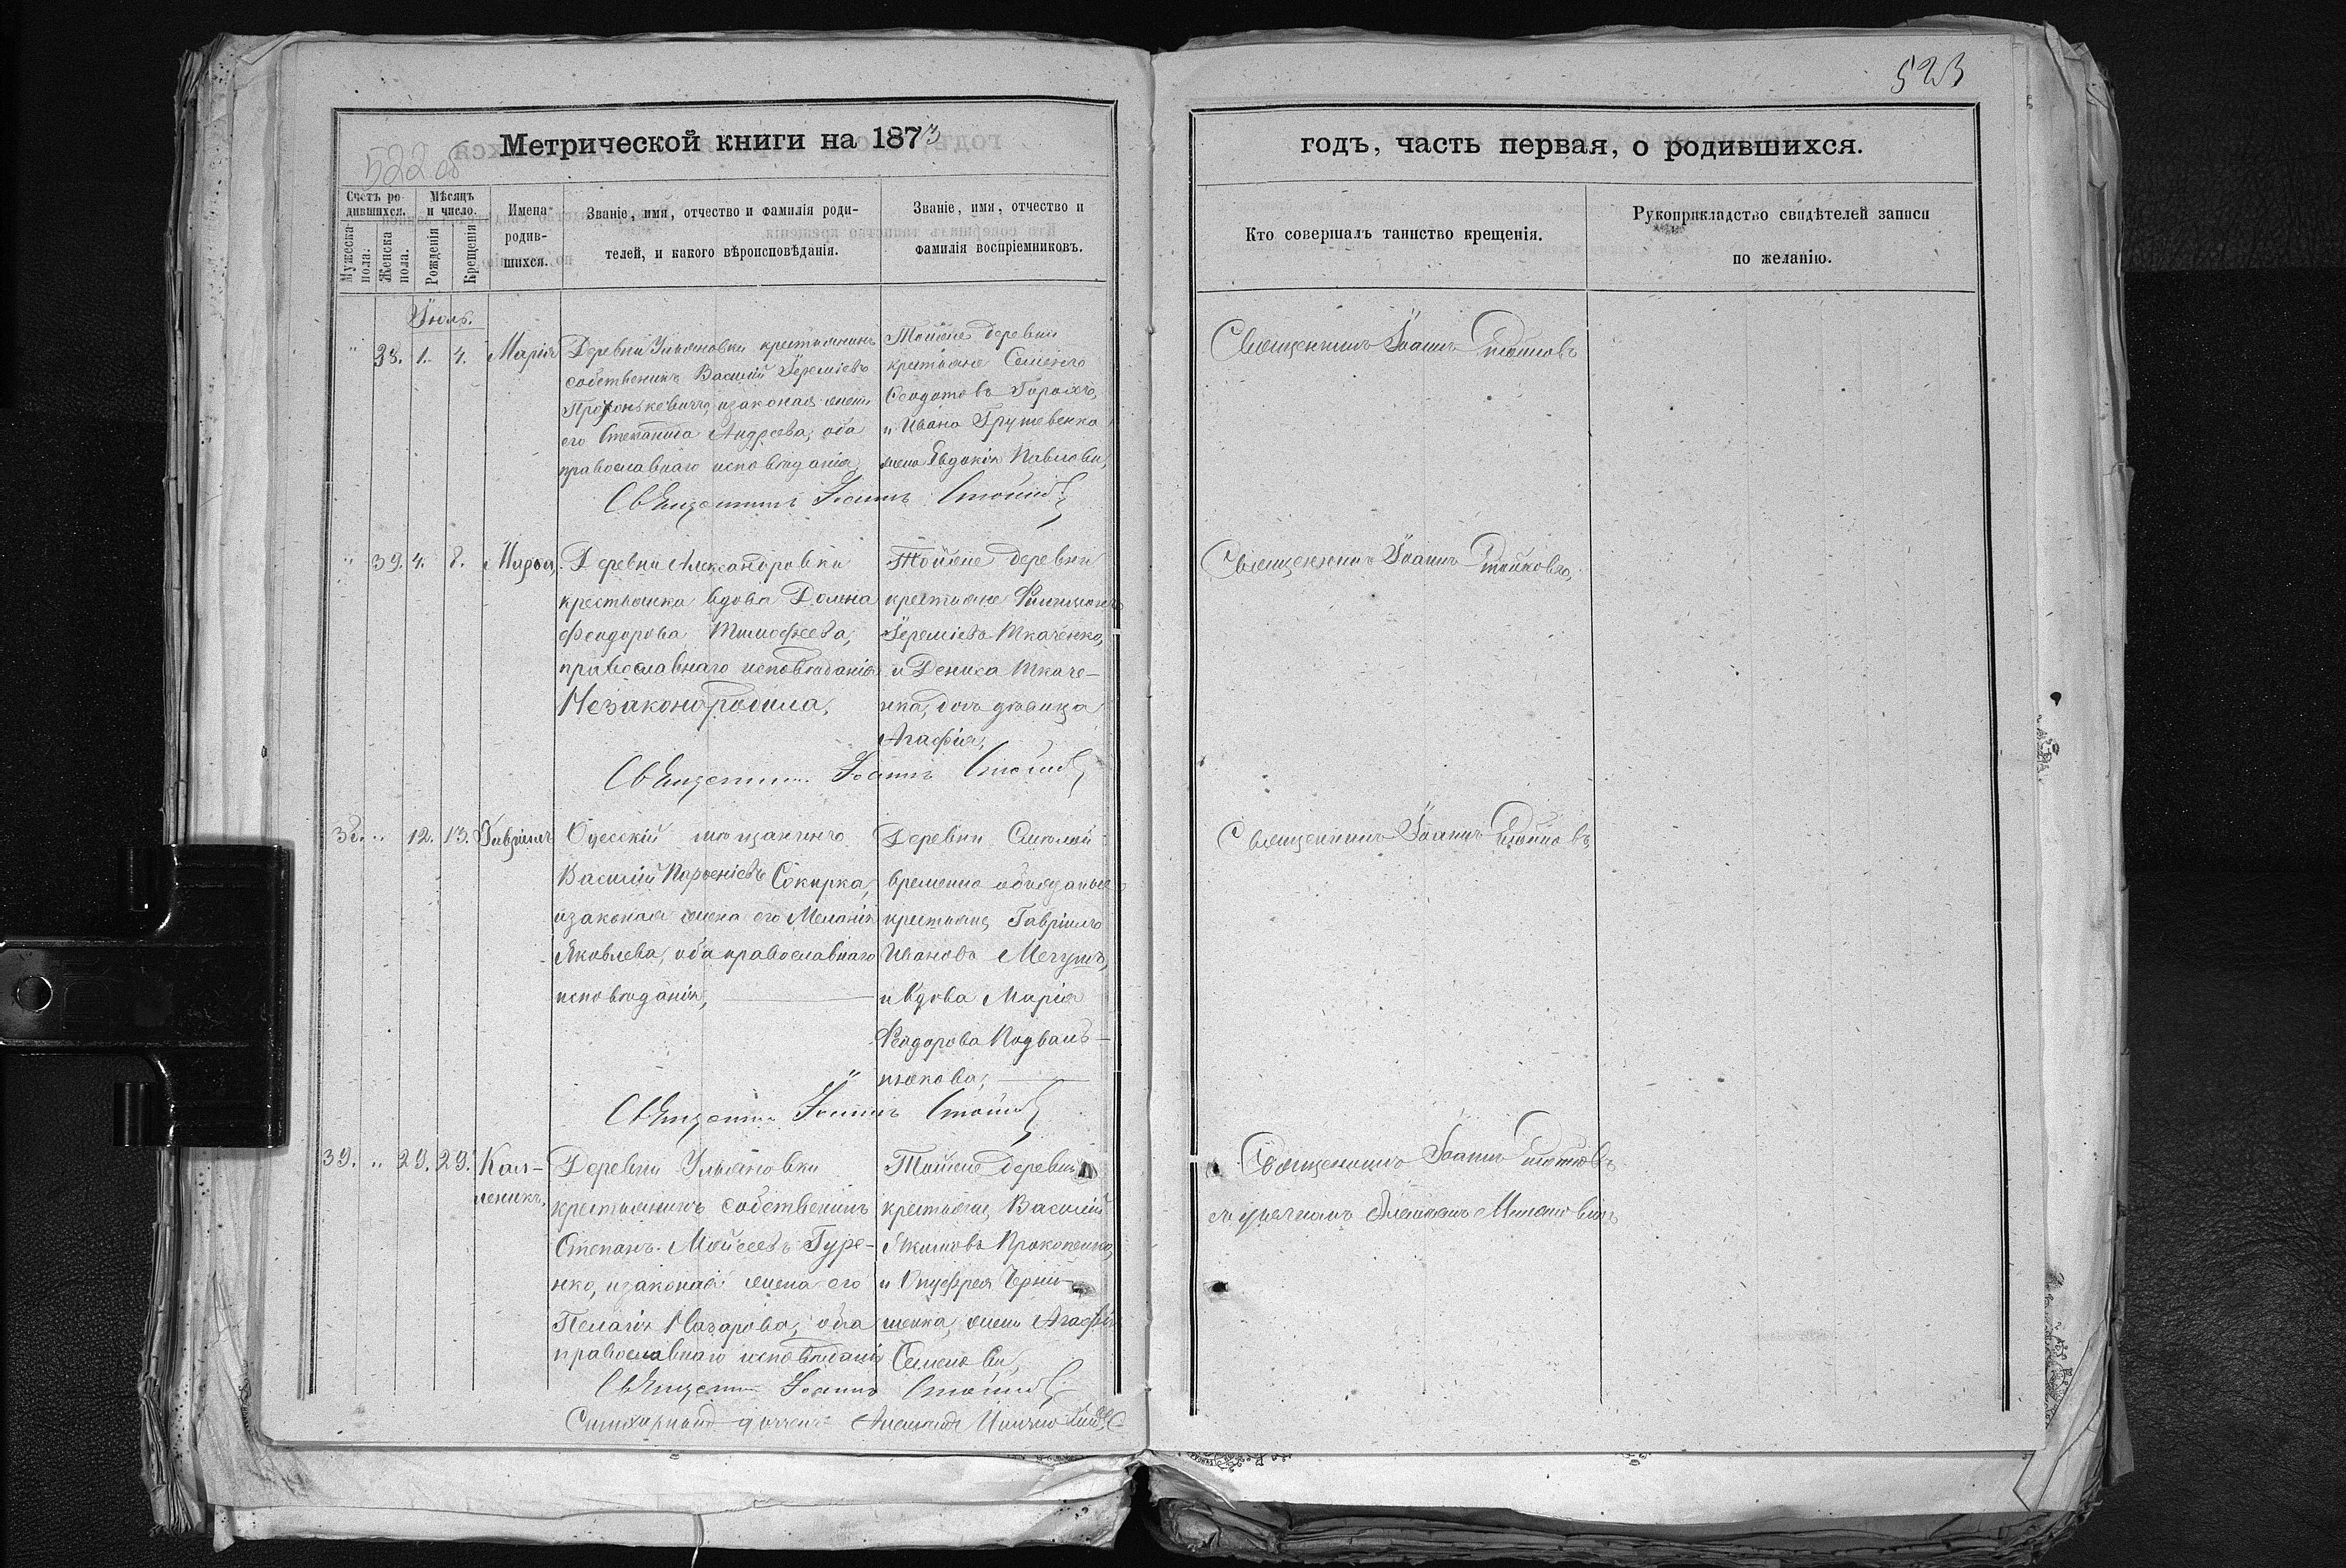 523
522 об
Метрической книги на 1873
годъ, часть первая, о родившихся.
Счетъ родившихся.
Мужеска пола.
Женска пола.
Мѣсяцъ и число.
Рожденія
Крещенія
Имена родившихся.
Званіе, имя, отчество и фамилія родителей, и какого вѣроисповѣданія.
Званіе, имя, отчество и фамилія воспріемниковъ.
Кто совершалъ таинство крещенія.
Рукоприкладство свидѣтелей записи по желанію.
Іюль.
" 38. 1. 4. Марія
Деревни Ульяновки крестьянинъ
собственникъ Василій Іереміевъ
и законая жена
его Степанида Андреева, оба
православнаго исповѣданія,
Тойже деревни
крестьяне Семенъ
Феодотовъ Горохъ,
и Ивана Грушевенка
жена Евдокія Павлова,
Священникъ Іоаннъ Стойковъ
Священникъ Іоаннъ Стойковъ
" 39. 4. 8. Марфа,
Деревни Александровки
крестьянка вдова Домна
Феодорова Тимофеева,
православнаго исповѣданія
Незаконородила,
Тойже деревни
крестьяне Филимонъ
Іереміевъ Ткаченко,
и Дениса Ткаче-
нка, дочь дѣвица
Агафія,
Священникъ Іоаннъ Стойковъ
Священникъ Іоаннъ Стойковъ,
38. " 12. 13. Гавріилъ
Одесскій мѣщанинъ
Василій Парфеніевъ Сокирка,
и законая жена его Меланія
Яковлева, оба православнаго
исповѣданія,
Деревни
временно обязаные
крестьяне, Гавріилъ
Ивановъ
и вдова Марія
Феодорова Подваль-
нюкова,
Священникъ Іоаннъ Стойковъ
Священникъ Іоаннъ Стойковъ
39. " 29. 29. Кал-
леникъ,
Деревни Ульяновки
крестьянинъ собственникъ
Степанъ Мойсеевъ Гуре-
нко, и законая жена его
Пелагія Назарова, оба
православнаго исповѣданія
Тойже деревни
крестьяне, Василій
Якимовъ Прокопенко,
и Онуфрея Черни-
шенка, жена Агафія
Семенова,
Священникъ Іоаннъ Стойковъ
Священникъ Іоаннъ Стойковъ
съ дьячкомъ
Стихарный дьячекъ